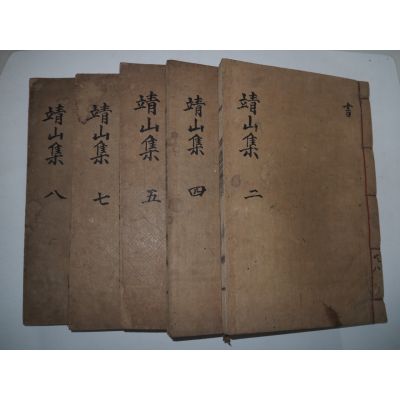 靖山集 二
靖山集 四
靖山集 五
靖山集 七
靖山集 八